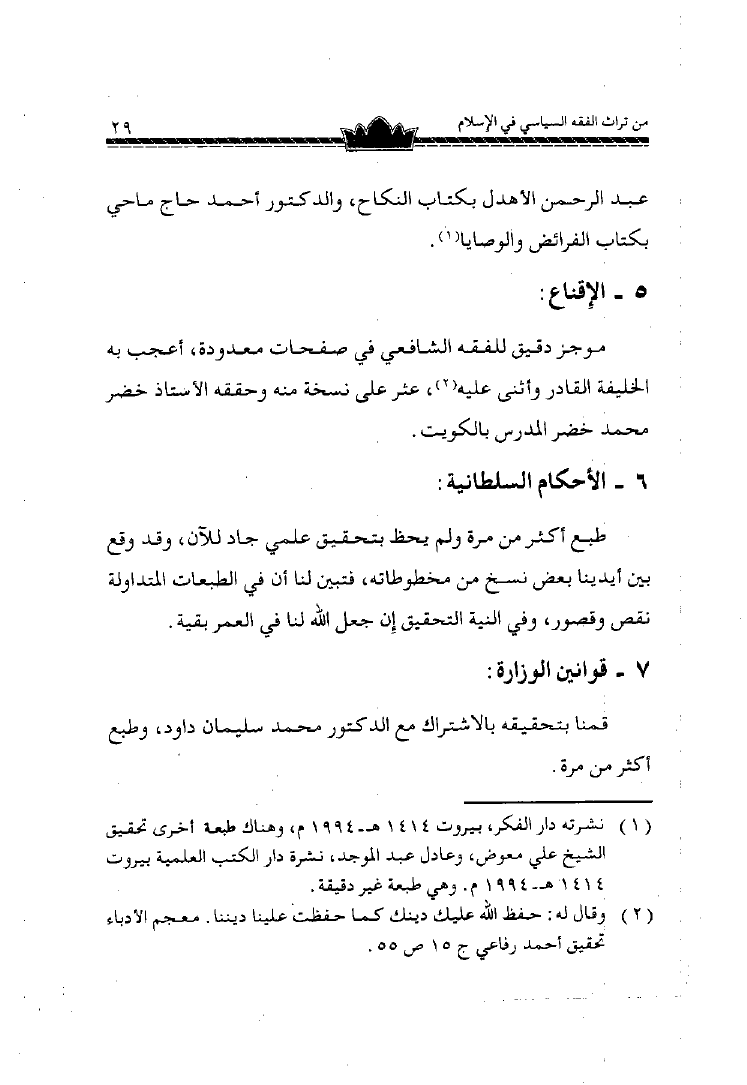 من تراث الفقه السياسي في الإسلام ٢٩
عبد الرحمن الأهدل بكتاب النكاح، والدكتور أحمد حاج ماحي
بكتاب الفرائض والوصايا(١).
٥ ـ الإقناع:
موجز دقيق للفقه الشافعي في صفحات معدودة، أعجب به
الخليفة القادر وأثنى عليه(٢)، عثر على نسخة منه وحققه الأستاذ خضر
محمد خضر المدرس بالكويت.
٦ ـ الأحكام السلطانية:
طبع أكثر من مرة ولم يحظ بتحقيق علمي جاد للآن، وقد وقع
بين أيدينا بعض نسخ من مخطوطاته، فتبين لنا أن في الطبعات المتداولة
نقص وقصور، وفي النية التحقيق إن جعل الله لنا في العمر بقية.
٧ ـ قوانين الوزارة:
قمنا بتحقيقه بالاشتراك مع الدكتور محمد سليمان داود، وطبع
أكثر من مرة.
(١) نشرته دار الفكر، بيروت ١٤١٤ هـ ـ ١٩٩٤ م، وهناك طبعة أخرى تحقيق
الشيخ علي معوض، وعادل عبد الموجد، نشرة دار الكتب العلمية بيروت
١٤١٤ هـ ـ ١٩٩٤ م. وهي طبعة غير دقيقة.
(٢) وقال له: حفظ الله عليك دينك كما حفظت علينا ديننا. معجم الأدباء
تحقيق أحمد رفاعي ج ١٥ ص ٥٥.